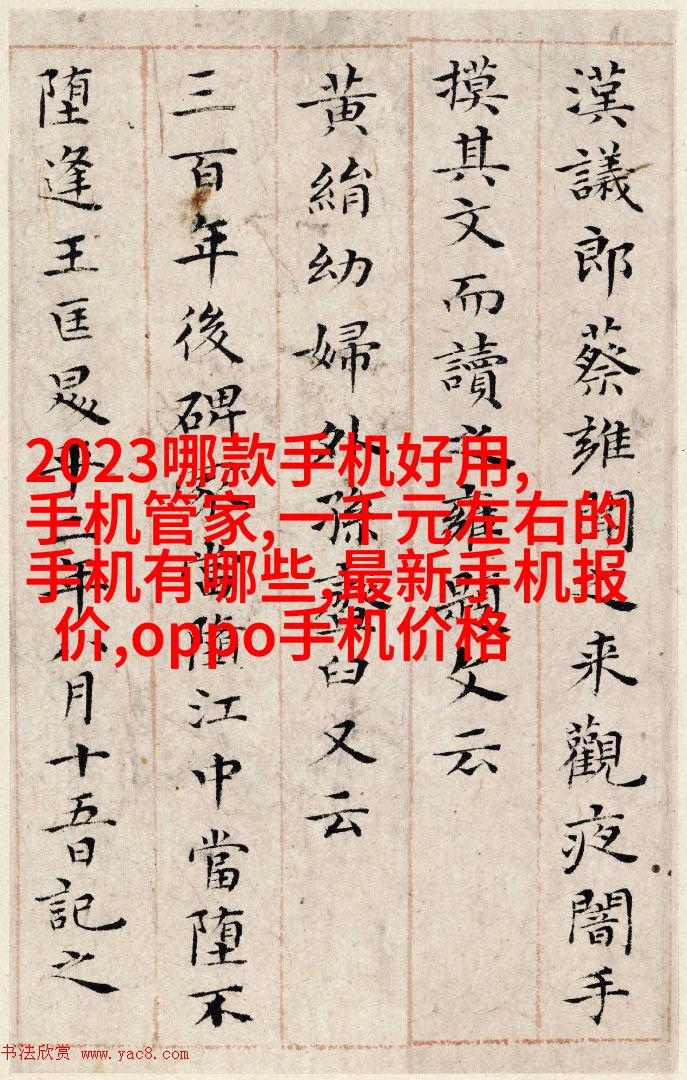 漢議郎蔡雍聞之來觀夜闇手
摸其文而讀之雍題文云
黃絹幼婦外孫齏臼又云
三百年後碑冢當墮江中當墮不
墮逢王匡昇平二年八月十五日記之
2023哪款手机好用,
手机管家,一千元左右的
手机有哪些,最新手机报
价,oppo手机价格
书法欣赏 www.yac8.com